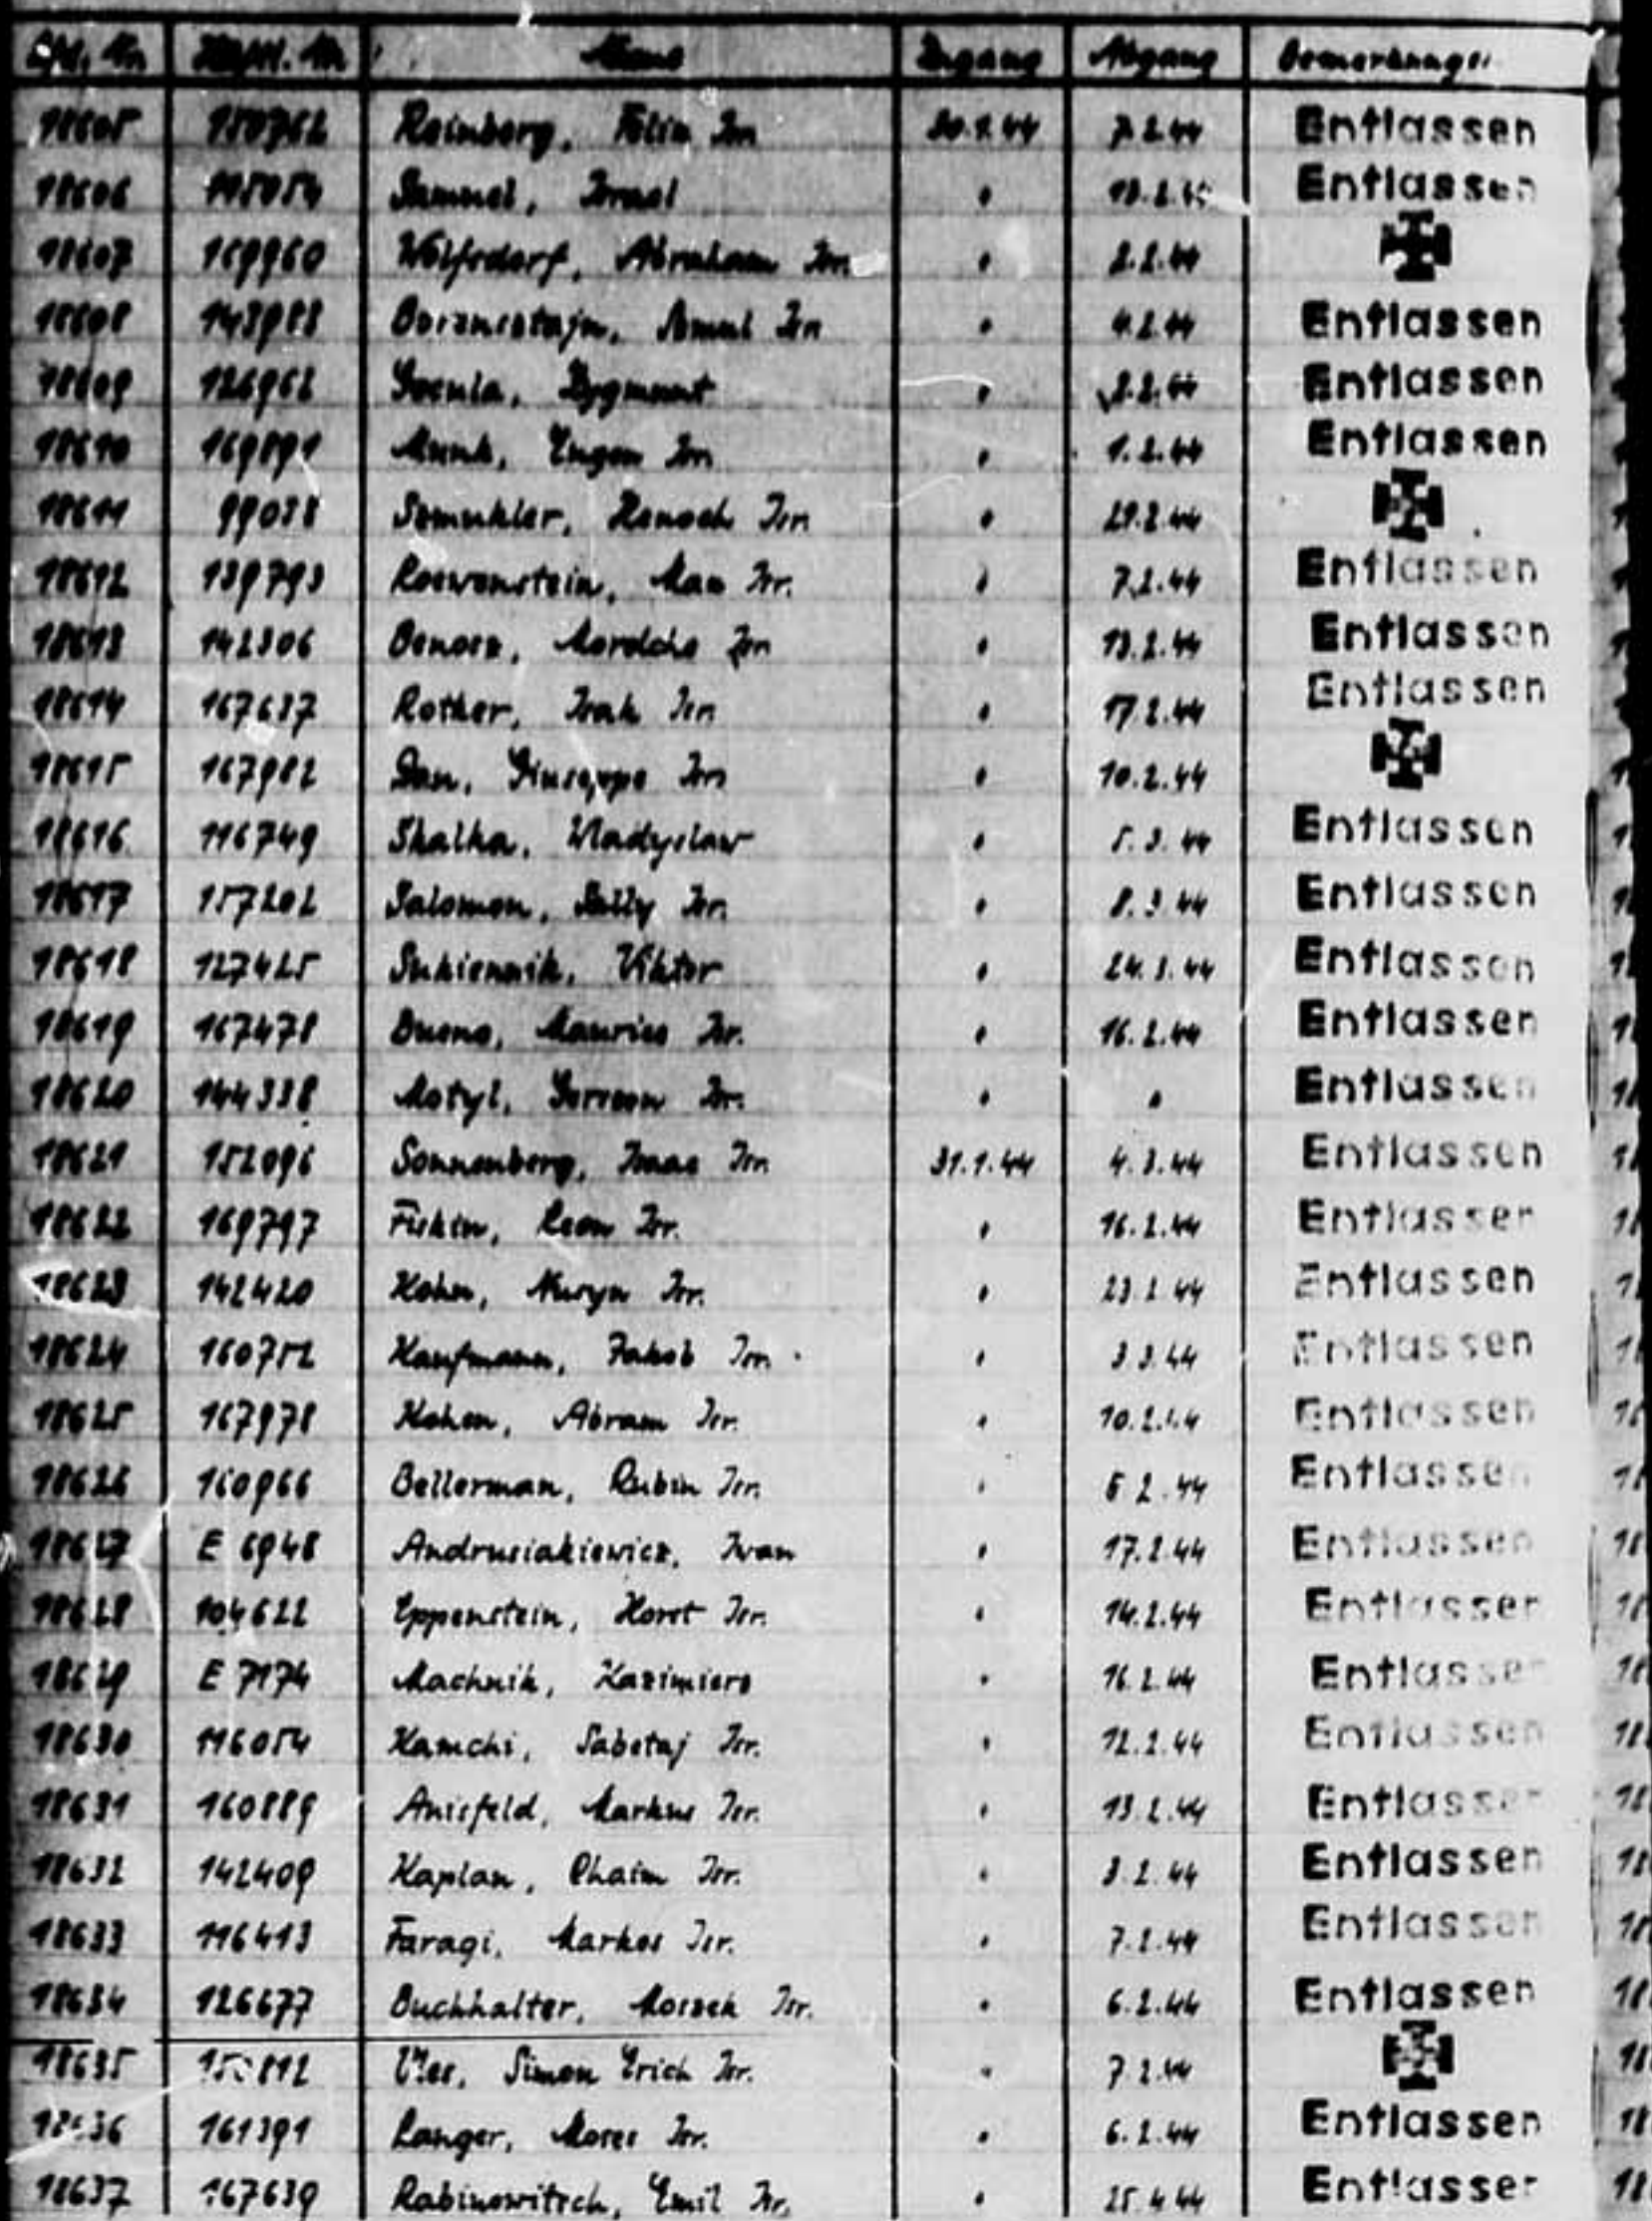 Lfd. Nr. Name Zugang Abgang Bemerkungen
18605 150762 Reinberg, Isr. 30.1.44 7.2.44 Entlassen
18606 Samuel, Israel " Entlassen
18607 169960 Wolfsdorf, Abraham Isr. " 2.2.44
18608 143988 Isr. " 4.2.44 Entlassen
18609 126962 Zygmunt " 2.2.44 Entlassen
18610 169891 Munk, Eugen Isr. " 1.2.44 Entlassen
18611 99038 Henoch Isr. " 29.2.44
18612 139793 Loewenstein, Max Isr. " 7.2.44 Entlassen
18613 142306 Mordcha Isr. " 13.2.44 Entlassen
18614 167637 Rother, Isak Isr. " 17.2.44 Entlassen
18615 167982 Giuseppe Isr. " 10.2.44
18616 116749 Skalka, Wladyslaw " 5.3.44 Entlassen
18617 157202 Salomon, Willy Isr. " 8.3.44 Entlassen
18618 127425 Sukiennik, Viktor " 24.3.44 Entlassen
18619 167478 Bueno, Maurice Isr. " 16.2.44 Entlassen
18620 144338 Motyl, Isr. " " Entlassen
18621 152096 Sonnenberg, Isaac Isr. 31.1.44 4.3.44 Entlassen
18622 169797 Fiskin, Leon Isr. " 16.2.44 Entlassen
18623 142420 Kohn, Isr. " 23.2.44 Entlassen
18624 160752 Kaufmann, Jakob Isr. " 3.3.44 Entlassen
18625 167978 Kohen, Abram Isr. " 10.2.44 Entlassen
18626 160966 Bellerman, Rubin Isr. " 6.2.44 Entlassen
18627 E 6948 Andrusiakiewicz, Iwan " 17.2.44 Entlassen
18628 104622 Eppenstein, Horst Isr. " 14.2.44 Entlassen
18629 E 7174 Machnik, Kazimierz " 16.2.44 Entlassen
18630 116054 Kamchi, Sabetaj Isr. " 12.2.44 Entlassen
18631 160889 Anisfeld, Markus Isr. " 13.2.44 Entlassen
18632 142409 Kaplan, Chaim Isr. " 3.2.44 Entlassen
18633 116413 Faragi, Markos Isr. " 7.2.44 Entlassen
18634 126677 Buchhalter, Moszek Isr. " 6.2.44 Entlassen
18635 Simon Erich Isr. " 7.2.44
18636 161391 Langer, Moses Isr. " 6.2.44 Entlassen
18637 167639 Rabinowitsch, Emil Isr. " 25.4.44 Entlassen